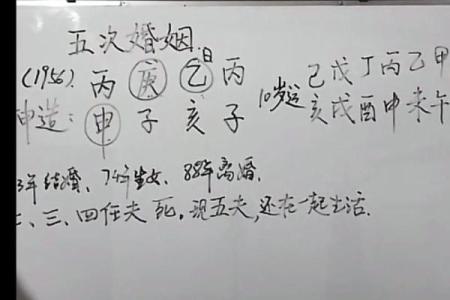 五次婚姻:
日
(1956). 丙 庚 乙 丙 己戊丁丙乙甲
10岁运
申造: 申 子 亥 子 亥戌酉申未午
3年结婚、74年生女、88年离婚.
、三、四任夫死,现五夫,还在一起生活.